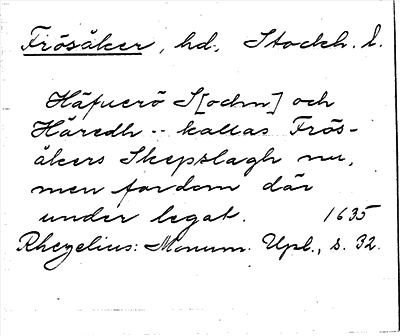 Frösåker, hd., Stockh. l.
Häfuerö S[ochn] och
Häredh -- kallas Frös-
åkers Skepslagh nu,
men fordom där
under legat. 1635
Rhezelius: Monum. Upl., s. 32.